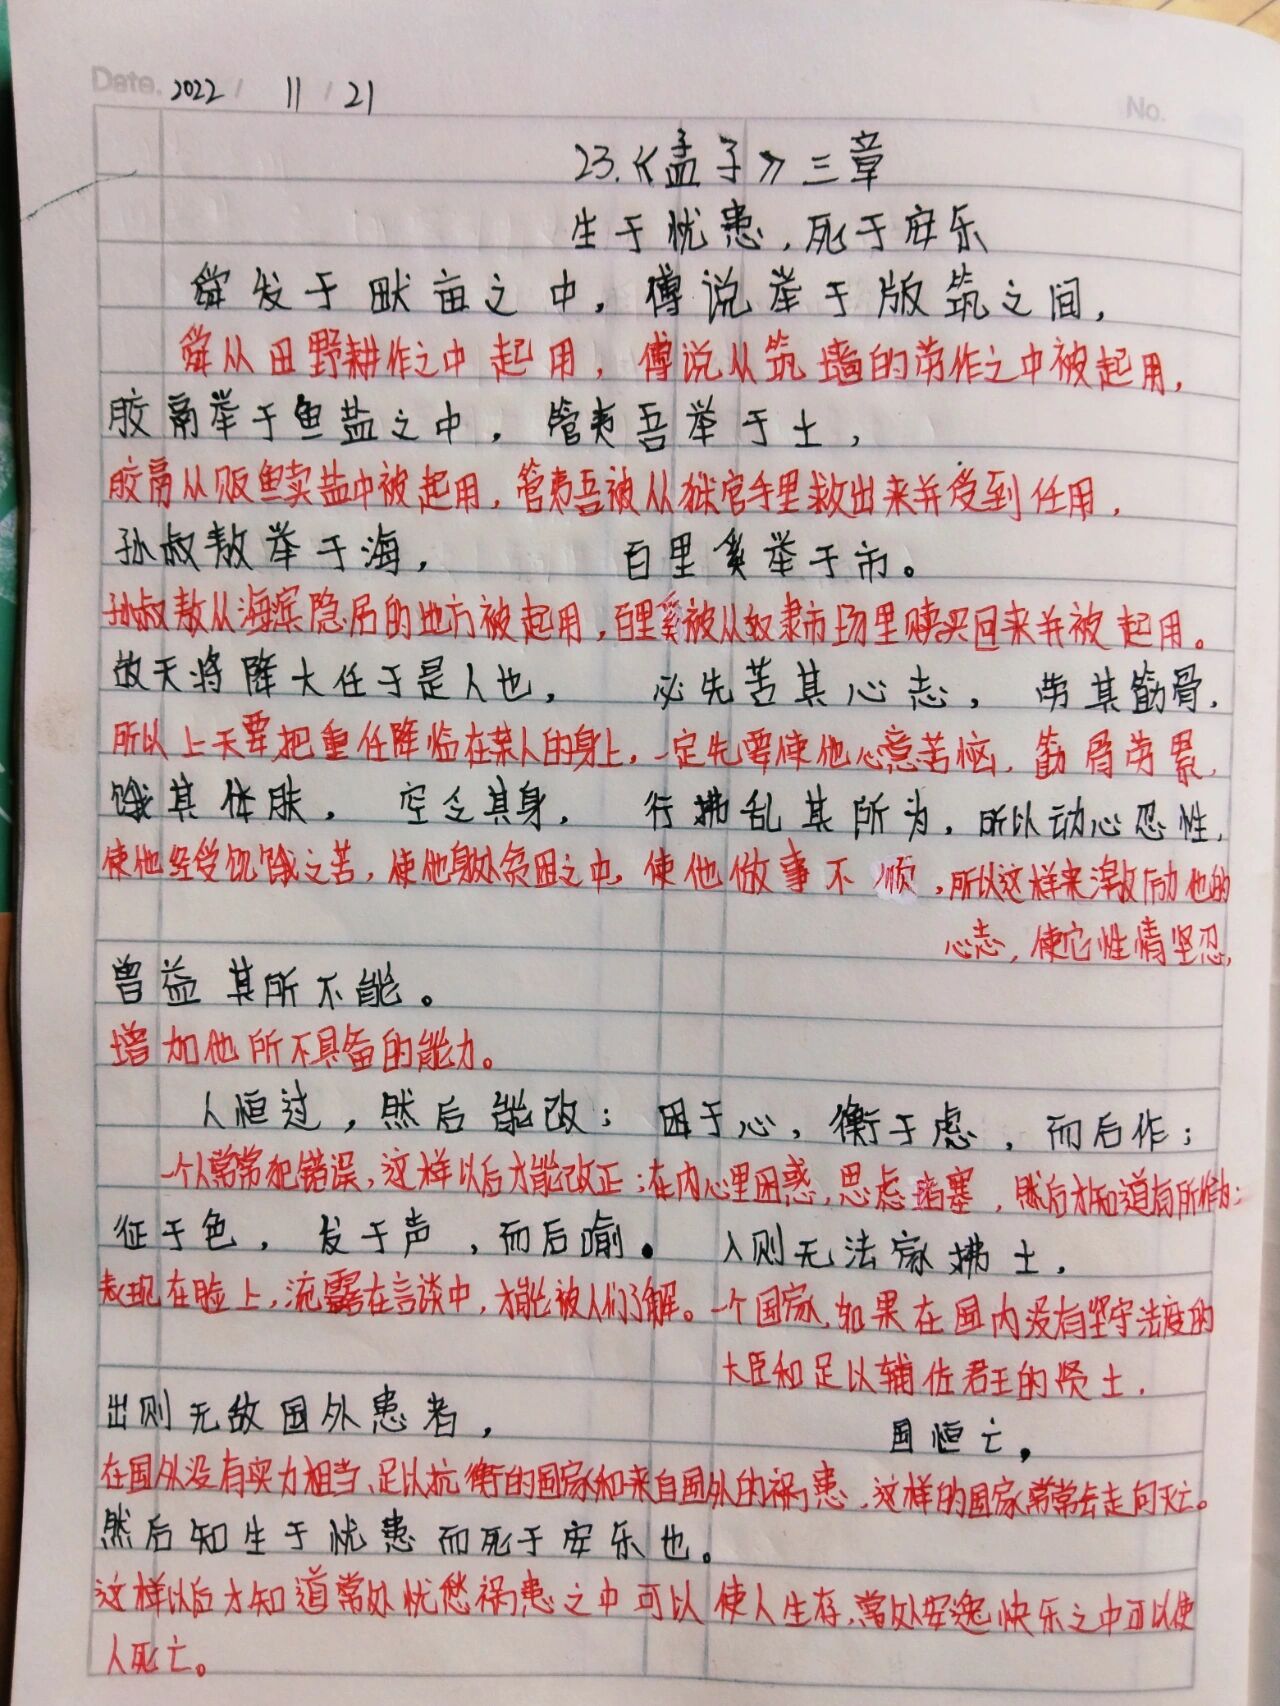 Date. 2022 / 11 / 21
No.
23.《孟子》三章
生于忧患，死于安乐
舜发于畎亩之中，傅说举于版筑之间，
舜从田野耕作之中起用，傅说从筑墙的劳作之中被起用，
胶鬲举于鱼盐之中，管夷吾举于士，
胶鬲从贩鱼卖盐中被起用，管夷吾被从狱官手里救出来并受到任用，
孙叔敖举于海，百里奚举于市。
孙叔敖从海滨隐居的地方被起用，百里奚被从奴隶市场里赎买回来并被起用。
故天将降大任于是人也，必先苦其心志，劳其筋骨，
所以上天要把重任降临在某人的身上，一定先要使他心意苦恼，筋骨劳累，
饿其体肤，空乏其身，行拂乱其所为，所以动心忍性，
使他经受饥饿之苦，使他身处贫困之中，使他做事不顺，所以这样来激励他的
心志，使它性情坚忍，
曾益其所不能。
增加他所不具备的能力。
人恒过，然后能改；困于心，衡于虑，而后作；
一个人常常犯错误，这样以后才能改正；在内心里困惑，思虑堵塞，然后才知道有所作为；
征于色，发于声，而后喻。入则无法家拂士，
表现在脸上，流露在言谈中，才能被人们了解。一个国家，如果在国内没有坚守法度的
大臣和足以辅佐君王的贤士，
出则无敌国外患者，国恒亡。
在国外没有实力相当、足以抗衡的国家和来自国外的祸患，这样的国家常常会走向灭亡。
然后知生于忧患而死于安乐也。
这样以后才知道常处忧愁祸患之中可以使人生存，常处安逸快乐之中可以使
人死亡。